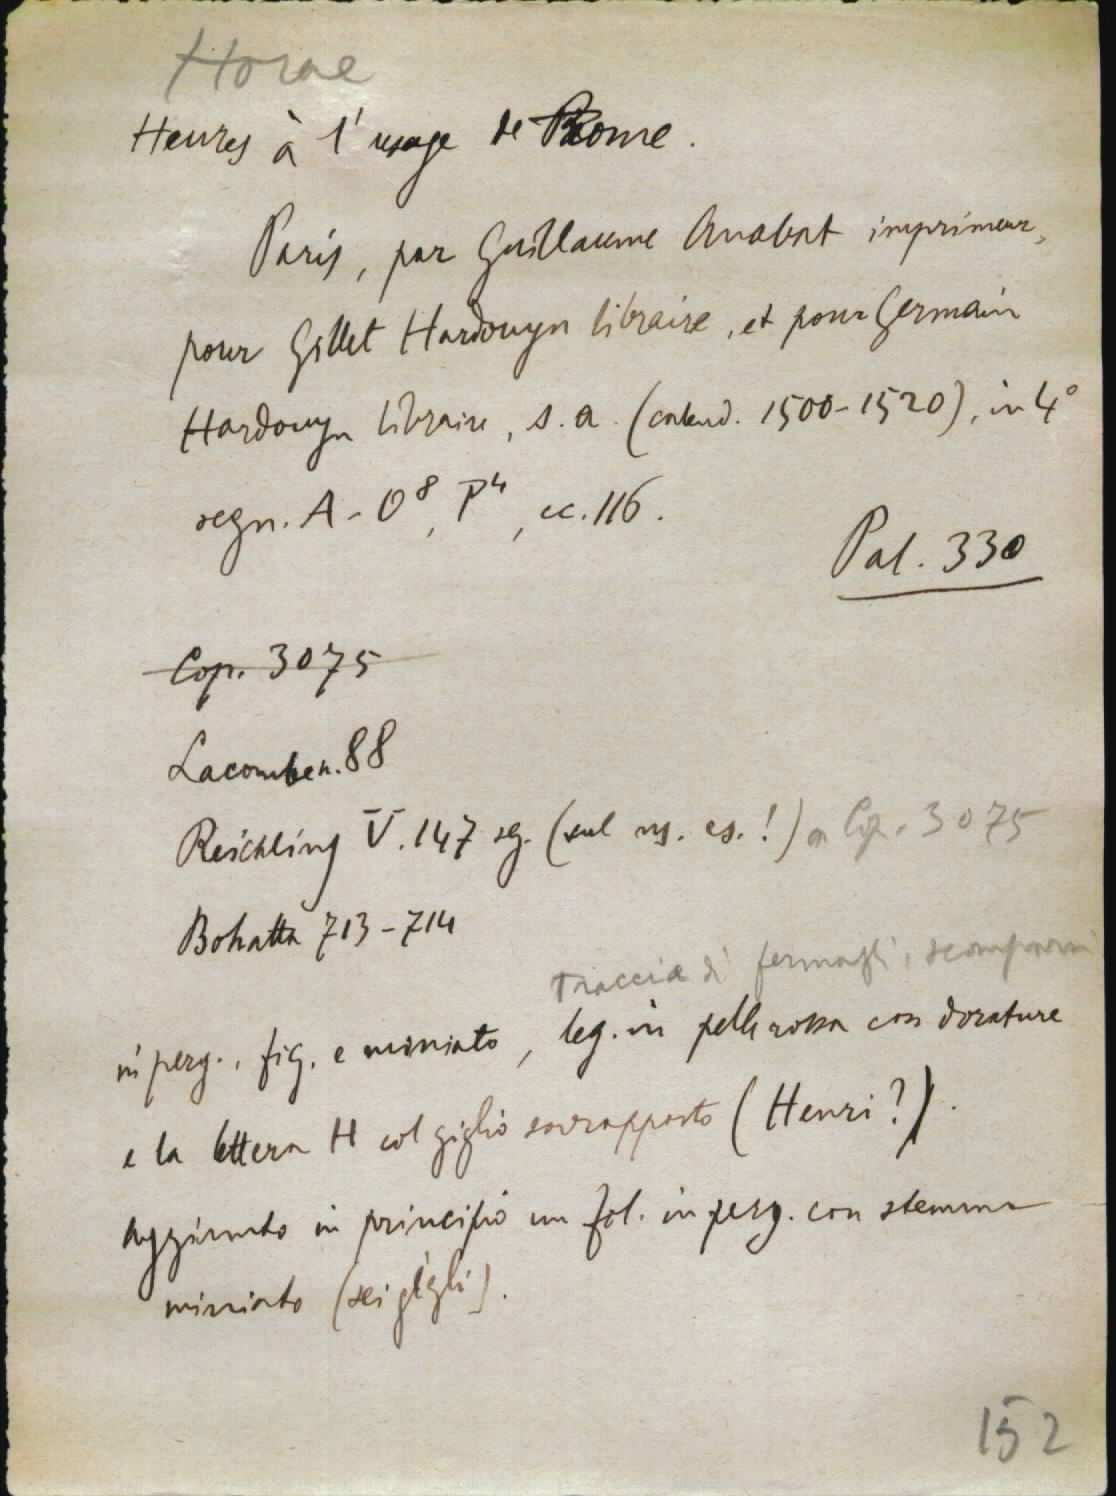 Horae
Heures à l'usage de Rome.
Paris, par Guillaume Anabat imprimeur,
pour Gillet Hardouyn libraire, et pour Germain
Hardouyn libraire, s. a. (calend. 1500-1520), in 4°
segn. A-O⁸, P⁴, cc. 116.
Pal. 330
Cop. 3075
Lacombe n. 88
Reichling V. 147 sg. (sul ns. es.!) a Cop. 3075
Bohatta 713-714
Traccia di fermagli, scomparsi
in perg., fig. e miniato, leg. in pelle rossa con dorature
e la lettera H col giglio sovrapposto (Henri?).
Aggiunto in principio un fol. in perg. con stemma
miniato (sei gigli).
152